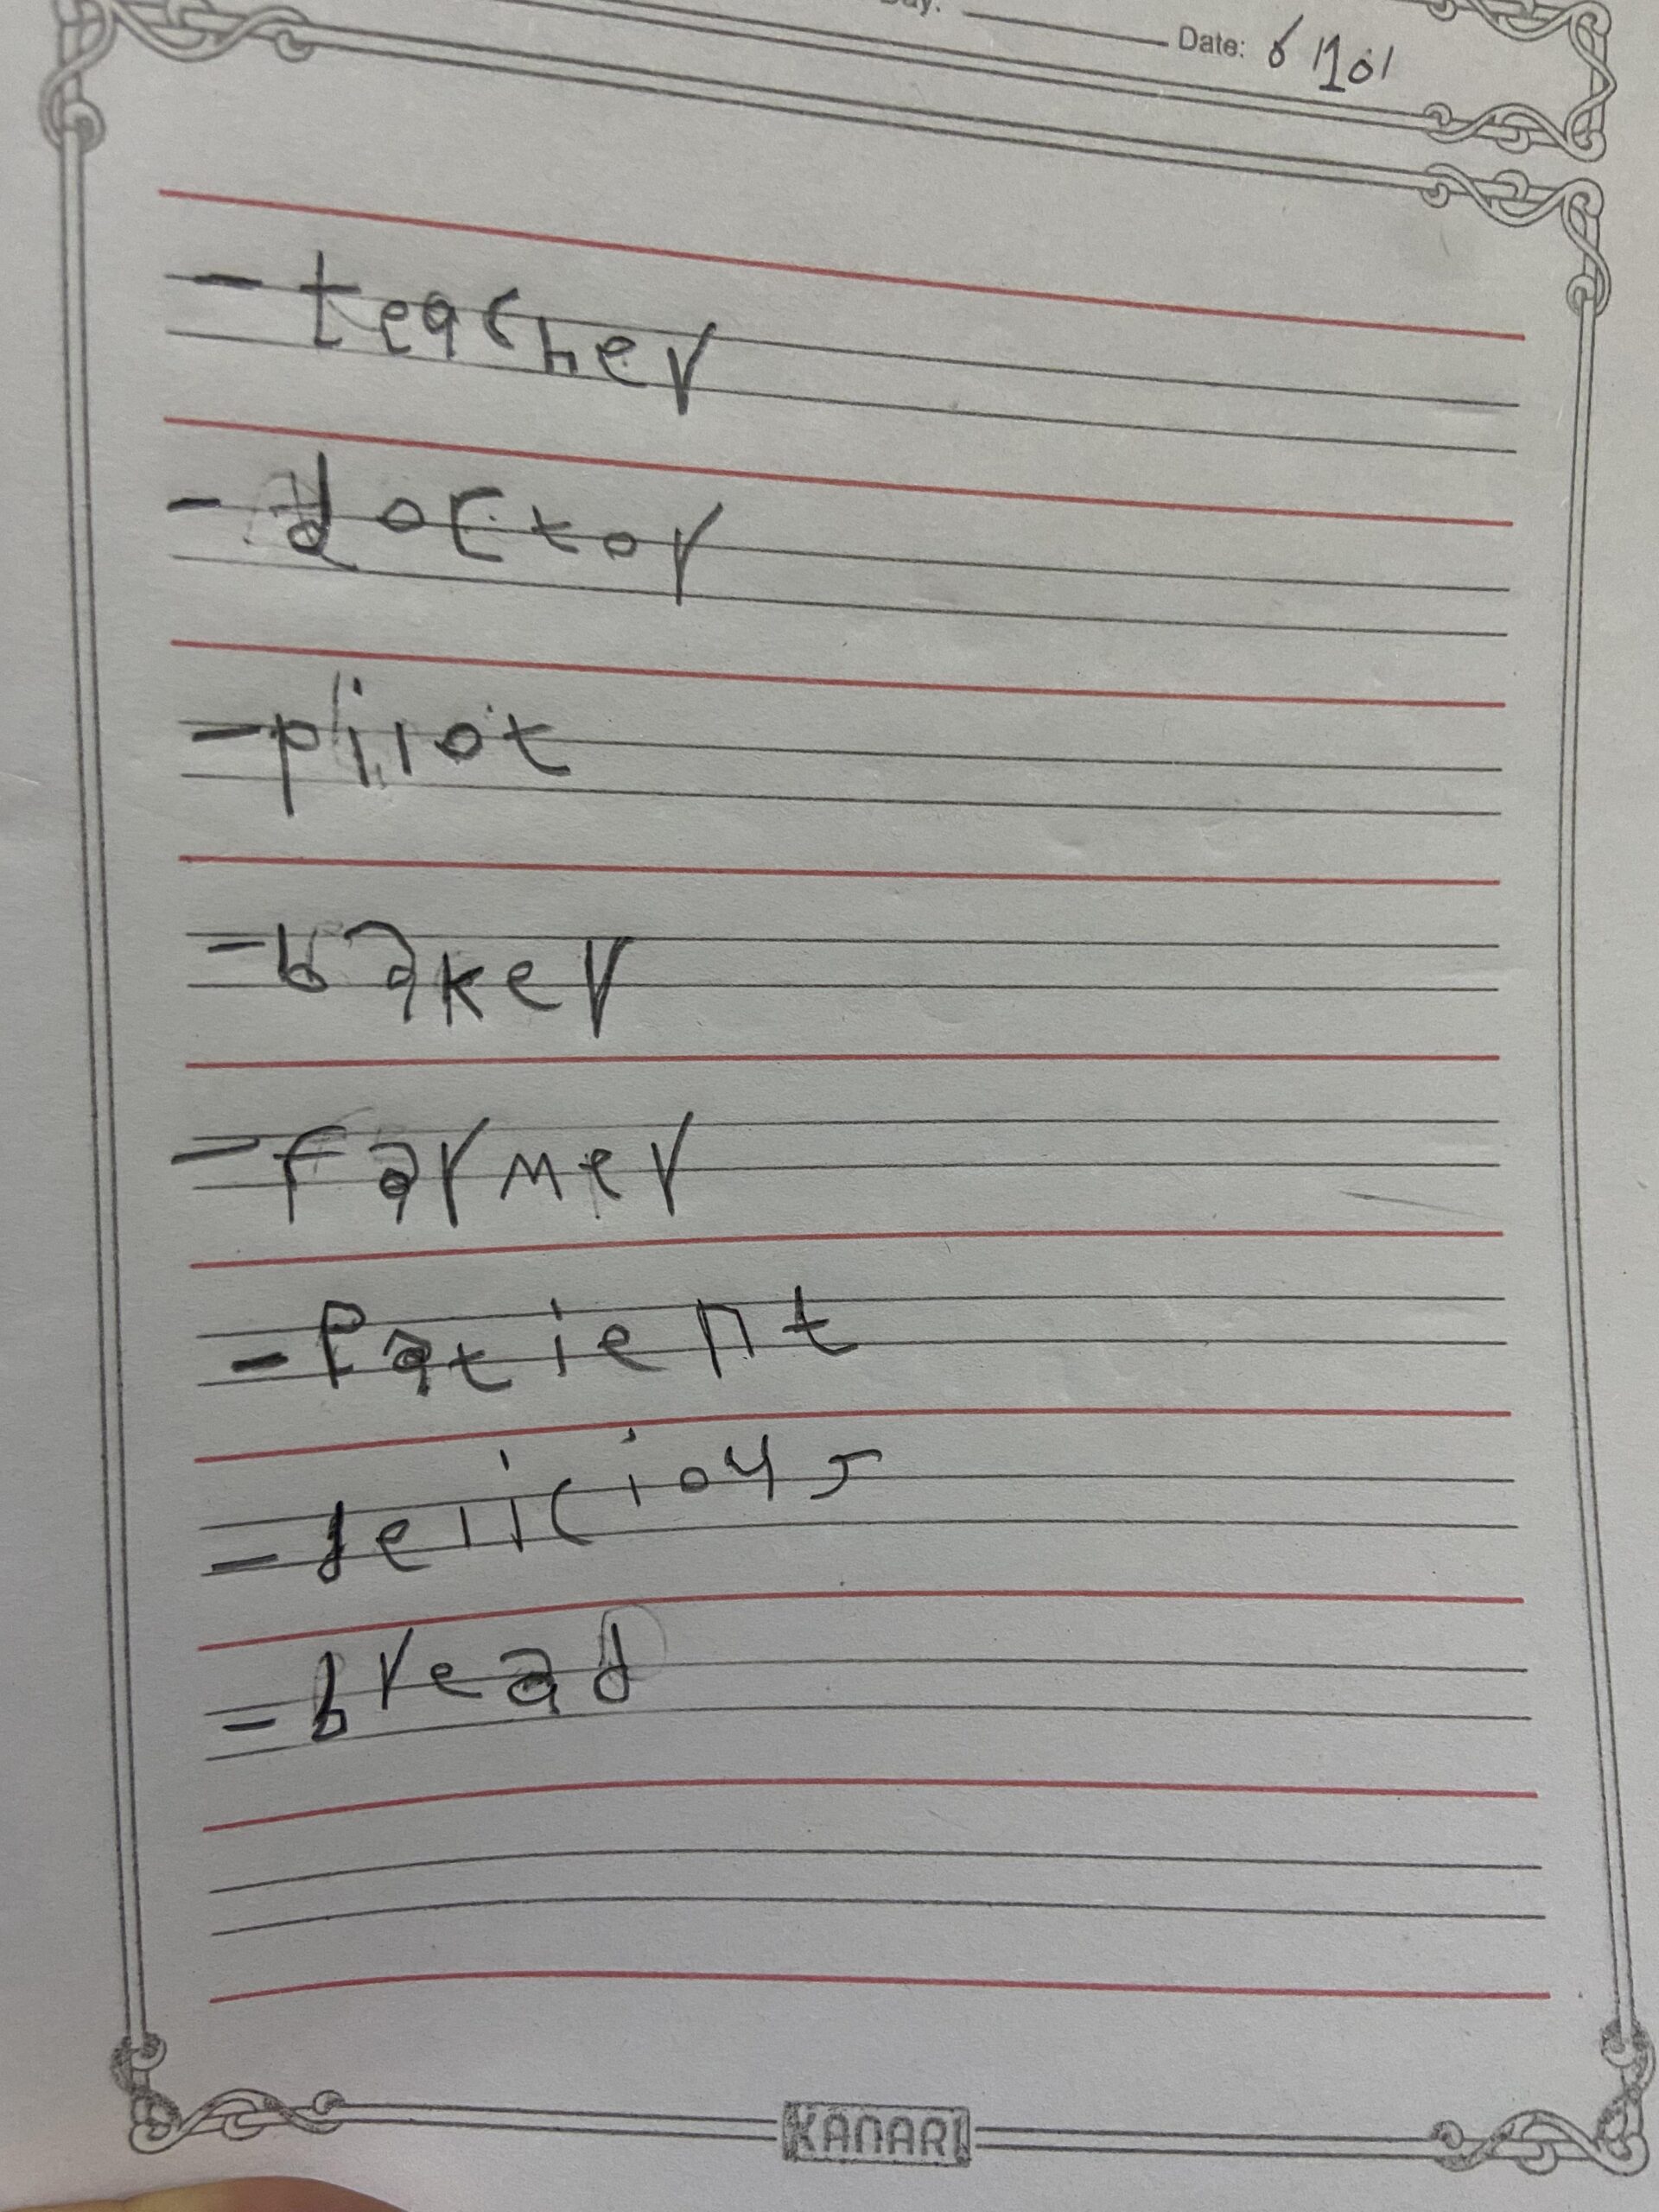 Date: 6
- teacher
- doctor
- pilot
- baker
- farmer
- Patient
- delicious
- bread
KANARI